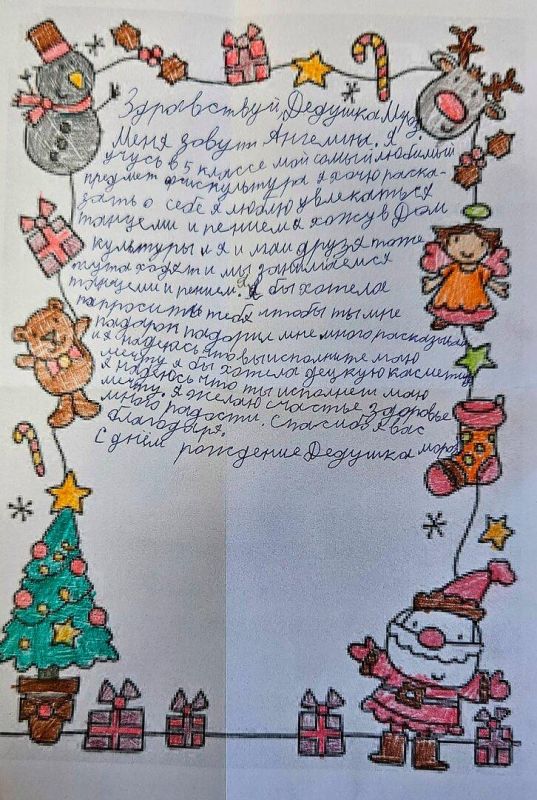 Здравствуй, Дедушка Мороз,
Меня зовут Ангелина. Я
учусь в 5 классе мой самый любимый
предмет физкультура я хочу раска-
зать о себе я люблю увлекаться
танцеми и пением я хожу в Дом
культуры и я и маи друзя тоже
тута ходят и мы занимаемся
танцеми и пением. Я бы хотела
папросить тебя чтобы ты мне
падарок падарил мне много расказывали
и я надеюсь что вы исполните маю
мечту я бы хотела децкую касметику
я надеюсь что ты исполнеш маю
мечту. Я желаю счастье здоровье
много радости. Спасиба я вас
благодаря.
С днём рождение Дедушка мороз